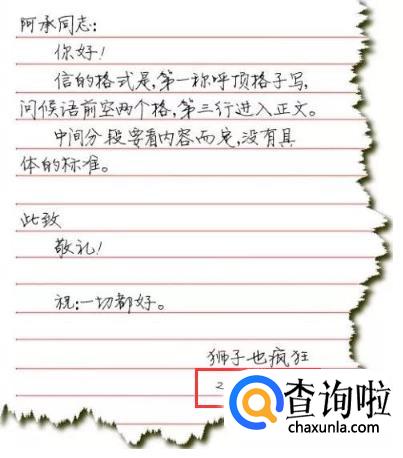 阿承同志：
你好！
信的格式是，第一称呼顶格子写，
问候语前空两个格，第三行进入正文。
中间分段要看内容而定，没有具
体的标准。
此致
敬礼！
祝：一切都好。
狮子也疯狂
2
查询啦
chaxunla.com